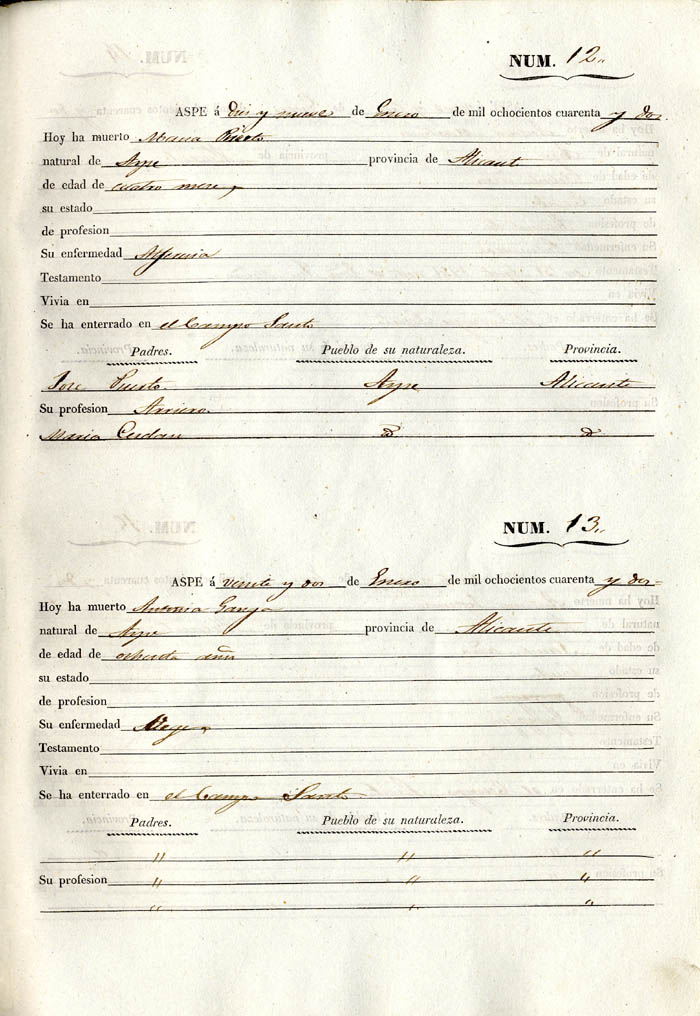 NUM. 12.
ASPE á Diez y nueve de Enero de mil ochocientos cuarenta y dos
Hoy ha muerto Maria
natural de Aspe provincia de Alicant
de edad de cuatro meses
su estado
de profesion
Su enfermedad
Testamento
Vivia en
Se ha enterrado en el Campo Santo
Padres. Pueblo de su naturaleza. Provincia.
Jose Puerto Aspe Alicante
Su profesion Arriero
Maria
NUM. 13.
ASPE á veinte y dos de Enero de mil ochocientos cuarenta y dos
Hoy ha muerto
natural de Aspe provincia de Alicante
de edad de ochenta años
su estado
de profesion
Su enfermedad
Testamento
Vivia en
Se ha enterrado en el Campo Santo
Padres. Pueblo de su naturaleza. Provincia.
" " "
Su profesion " " "
" " "